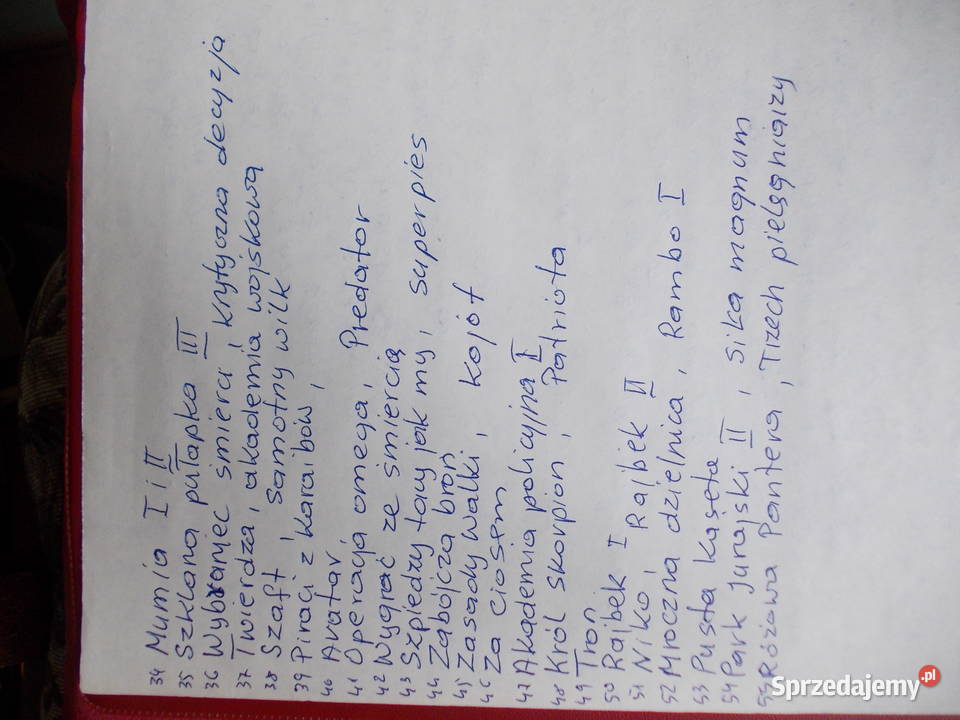 34 Mumia I i II
35 Szklana pułapka III
36 Wybraniec śmierci, krytyczna decyzja
37 Twierdza, akademia wojskowa
38 Szaft, samotny wilk
39 Piraci z Karaibów,
40 Avatar
41 Operacja omega, Predator
42 Wygrać ze śmiercią
43 Szpiedzy tacy jak my, superpies
44 Zabójcza broń
45 Zasady walki, kojot
46 Za ciosem
47 Akademia policyjna I
48 Król skorpion, Patriota
49 Tron
50 Rajbek I
51 Niko, Rajbek II
52 Mroczna dzielnica, Rambo I
53 Pusta kaseta
54 Park Jurajski II, Siła magnum
55 Różowa Pantera, Trzech pielęgniarzy
Sprzedajemy.pl